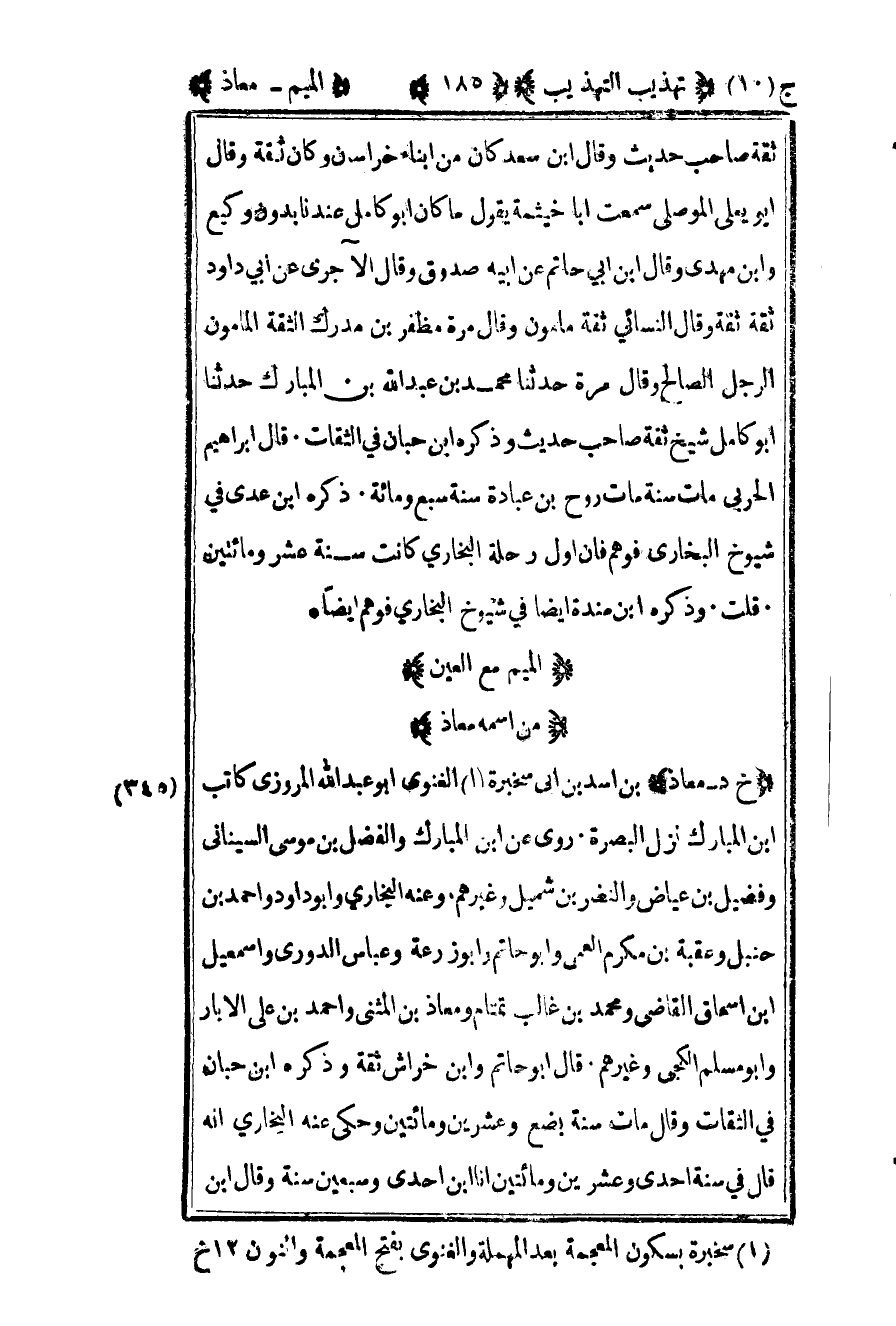 ج (١٠) ﴿ تهذيب التهذيب ﴾ ﴿ ١٨٥ ﴾ ﴿ الميم ـ معاذ ﴾
ثقة صاحب حديث وقال ابن سعد كان من ابناء خراسن وكان ثقة وقال
ابو يعلى الموصلى سمعت ابا خيثمة يقول ما كان ابو كامل عندنا بدون وكيع
وابن مهدى وقال ابن ابي حاتم عن ابيه صدوق وقال الآجرى عن ابي داود
ثقة ثقة وقال النسائي ثقة مامون وقال مرة مظفر بن مدرك الثقة المامون
الرجل الصالح وقال مرة حدثنا محمد بن عبدالله بن المبارك حدثنا
ابو كامل شيخ ثقة صاحب حديث وذكره ابن حبان في الثقات ٠ قال ابراهيم
الحربي مات سنة مات روح بن عبادة سنة سبع ومائة ٠ ذكره ابن عدى في
شيوخ البخارى فوهم فان اول رحلة البخاري كانت سنة عشر ومائتين
٠ قلت ٠ وذكره ابن مندة ايضا في شيوخ البخاري فوهم ايضاً ٠
﴿ الميم مع العين ﴾
﴿ من اسمه معاذ ﴾
﴿ خ د ـ معاذ ﴾ بن اسد بن ابى سخبرة (١) الغنوى ابو عبدالله المروزى كاتب (٣٤٥)
ابن المبارك نزل البصرة ٠ روى عن ابن المبارك والفضل بن موسى السينانى
وفضيل بن عياض والنضر بن شميل وغيرهم ٠ وعنه البخاري وابو داود واحمد بن
حنبل وعقبة بن مكرم العمى وابو حاتم وابوزرعة وعباس الدورى واسمعيل
ابن اسحاق القاضى ومحمد بن غالب تمتام ومعاذ بن المثنى واحمد بن على الابار
وابو مسلم الكجى وغيرهم ٠ قال ابو حاتم وابن خراش ثقة وذكره ابن حبان
في الثقات وقال مات سنة بضع وعشرين ومائتين وحكى عنه البخاري انه
قال في سنة احدى وعشرين ومائتين انا ابن احدى وسبعين سنة وقال ابن
(١) سخبرة بسكون المعجمة بعد المهملة والغنوى بفتح المعجمة والنون ١٢ خ